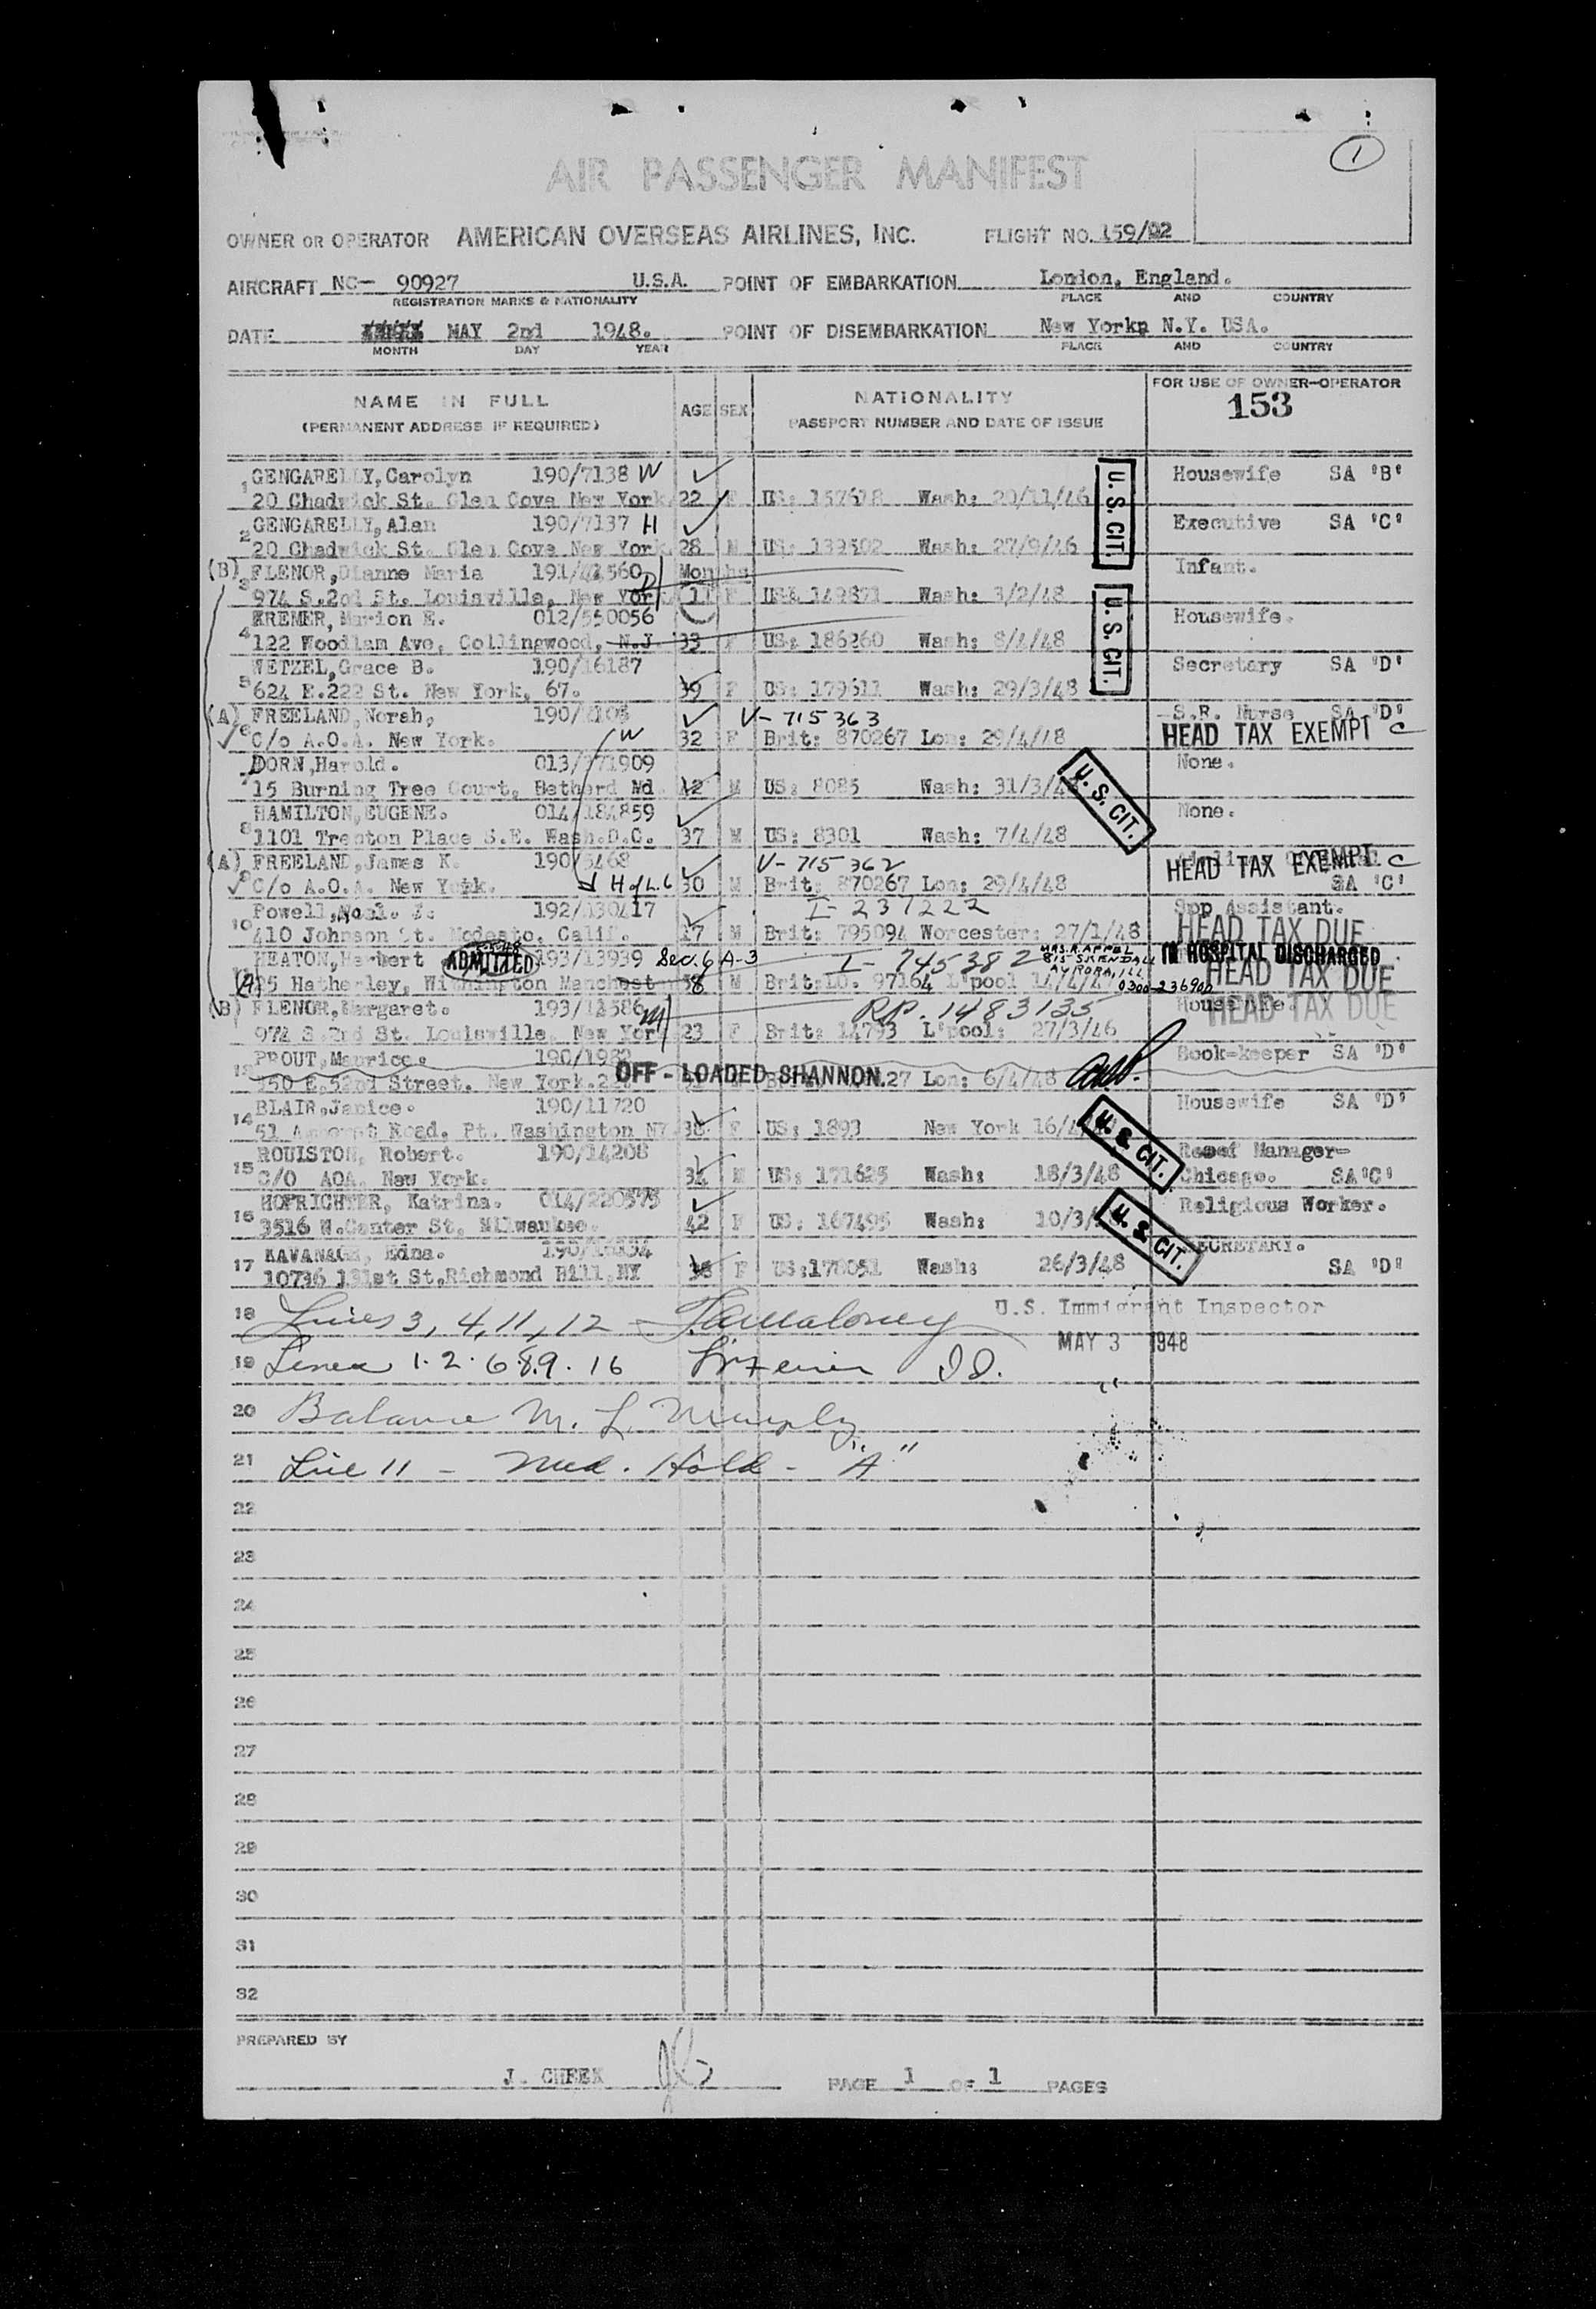 1
AIR PASSENGER MANIFEST
OWNER OR OPERATOR AMERICAN OVERSEAS AIRLINES, INC. FLIGHT NO. 159/02
AIRCRAFT NC- 90927 U.S.A. POINT OF EMBARKATION London, England.
REGISTRATION MARKS & NATIONALITY PLACE AND COUNTRY
DATE MAY 2nd 1948. POINT OF DISEMBARKATION New York, N.Y. USA.
MONTH DAY YEAR PLACE AND COUNTRY
NAME IN FULL AGE SEX NATIONALITY FOR USE OF OWNER-OPERATOR
(PERMANENT ADDRESS IF REQUIRED) PASSPORT NUMBER AND DATE OF ISSUE 153
1 GENGARELLY, Carolyn 190/7138 W Housewife SA "B"
20 Chadwick St. Glen Cove New York 22 F US: Wash: 20/11/46 U.S. CIT.
2 GENGARELLY, Alan 190/7137 H Executive SA "C"
20 Chadwick St. Glen Cove New York 28 M US: 139502 Wash: 27/9/46
(B) 3 FLENOR, Dianne Maria D Months Infant.
974 S.2nd St. Louisville, New York 11 F Wash: 3/2/48 U.S. CIT.
4 KREMER, Marion E. 012/550056 Housewife.
122 Woodlam Ave, Collingwood, N.J. 33 F US: 186260 Wash: 8/4/48
5 WETZEL, Grace B. 190/16187 Secretary SA "D"
624 E.222 St. New York, 67. 39 F US: 179611 Wash: 29/3/48
(A) 6 FREELAND, Norah, V-715363 S.R. Nurse SA "D"
C/o A.O.A. New York. W 32 F Brit: 870267 Lon: 29/4/48 HEAD TAX EXEMPT C
7 DORN, Harold. 013/171909 None.
15 Burning Tree Court, Betherd Md. 42 M US: 8085 Wash: 31/3/48 U.S. CIT.
8 HAMILTON, EUGENE. 014/184859 None.
1101 Trenton Place S.E. Wash.D.C. 37 M US: 8301 Wash: 7/4/48
(A) 9 FREELAND, James K. 190/5468 V-715362 HEAD TAX EXEMPT C
C/o A.O.A. New York. H of L.6 30 M Brit: 870267 Lon: 29/4/48 SA "C"
10 Powell, 192/130417 I-237222 Spp Assistant.
410 Johnson St. Modesto, Calif. 17 M Brit: 795094 Worcester: 27/1/48 HEAD TAX DUE
HEATON, Herbert ADMITTED 193/13939 Sec. 6 A-3 I-745382 MRS. R. APPEL IN HOSPITAL DISCHARGED
(A) Hatherley, Withington Manchest 58 M 97164 L'pool AURORA, ILL 0300-236902 HEAD TAX DUE
(B) FLENOR, Margaret. 193/12586 M RP. 1483135 Housewife
974 S.2nd St. Louisville, New Yor 23 F Brit: 14793 L'pool: 27/3/46 HEAD TAX DUE
13 PROUT, Maurice. Book-keeper SA "D"
350 E.52nd Street. New York. OFF-LOADED SHANNON. Lon: 6/4/48
14 BLAIR, Janice. 190/11720 Housewife SA "D"
51 Road. Pt. Washington NY 38 F US: 1893 New York U.S. CIT.
15 ROUISTON, Robert. 190/14208 Manager-
C/O AOA. New York. 34 M US: 171625 Wash: 18/3/48 Chicago. SA "C"
16 HOFRICHTER, Katrina. 014/220575 Religious Worker.
3516 W.Center St. Milwaukee. 42 F US: 167495 Wash: 10/3/ U.S. CIT.
17 KAVANAGH, Edna. SECRETARY.
10736 131st St. Richmond Bill, NY F US: 178051 Wash: 26/3/48 SA "D"
18 Lines 3, 4, 11, 12 Maloney U.S. Immigrant Inspector
MAY 3 1948
19 Lines 1.2.6.8.9.16
20 Balance M. L. Murphy
21 Line 11 - Med. Hold - "A"
22
23
24
25
26
27
28
29
30
31
32
PREPARED BY
J. CHEEK PAGE 1 OF 1 PAGES